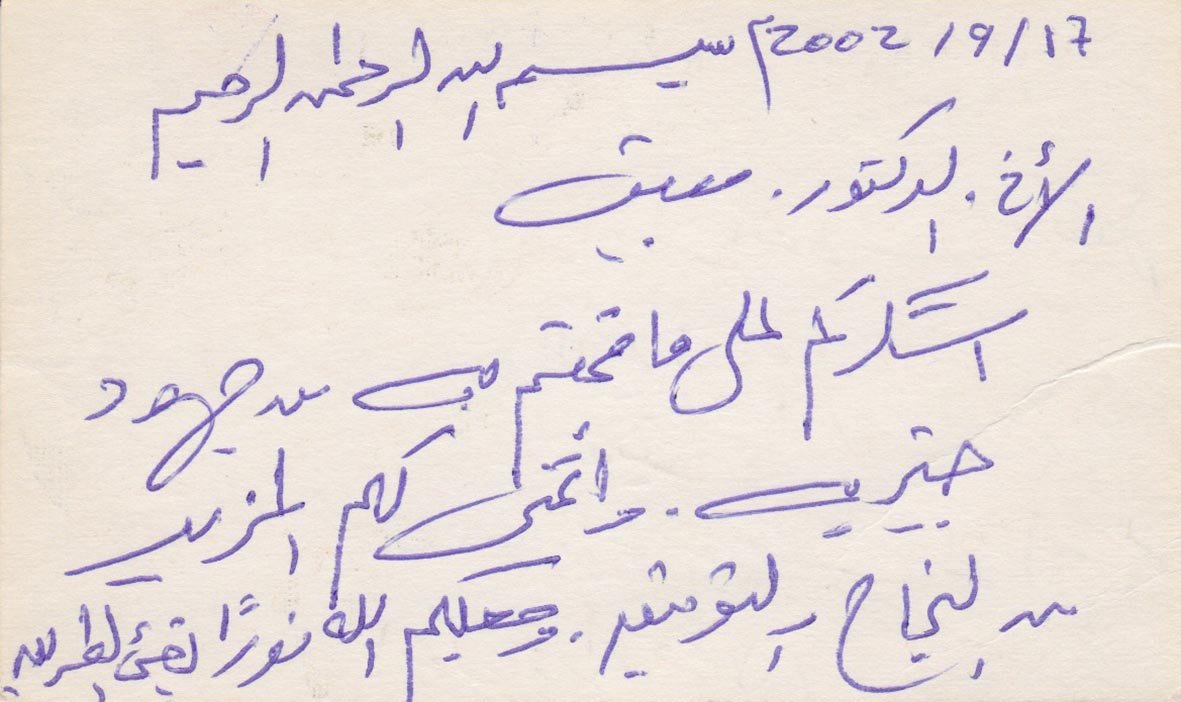 2002/9/17م بسم الله الرحمن الرحيم
الأخ. الدكتور.
اشكركم على ما قمتم به من جهود
واتمنى لكم المزيد
من النجاح والتوفيق. وجعلكم الله نورًا يضئ الطريق